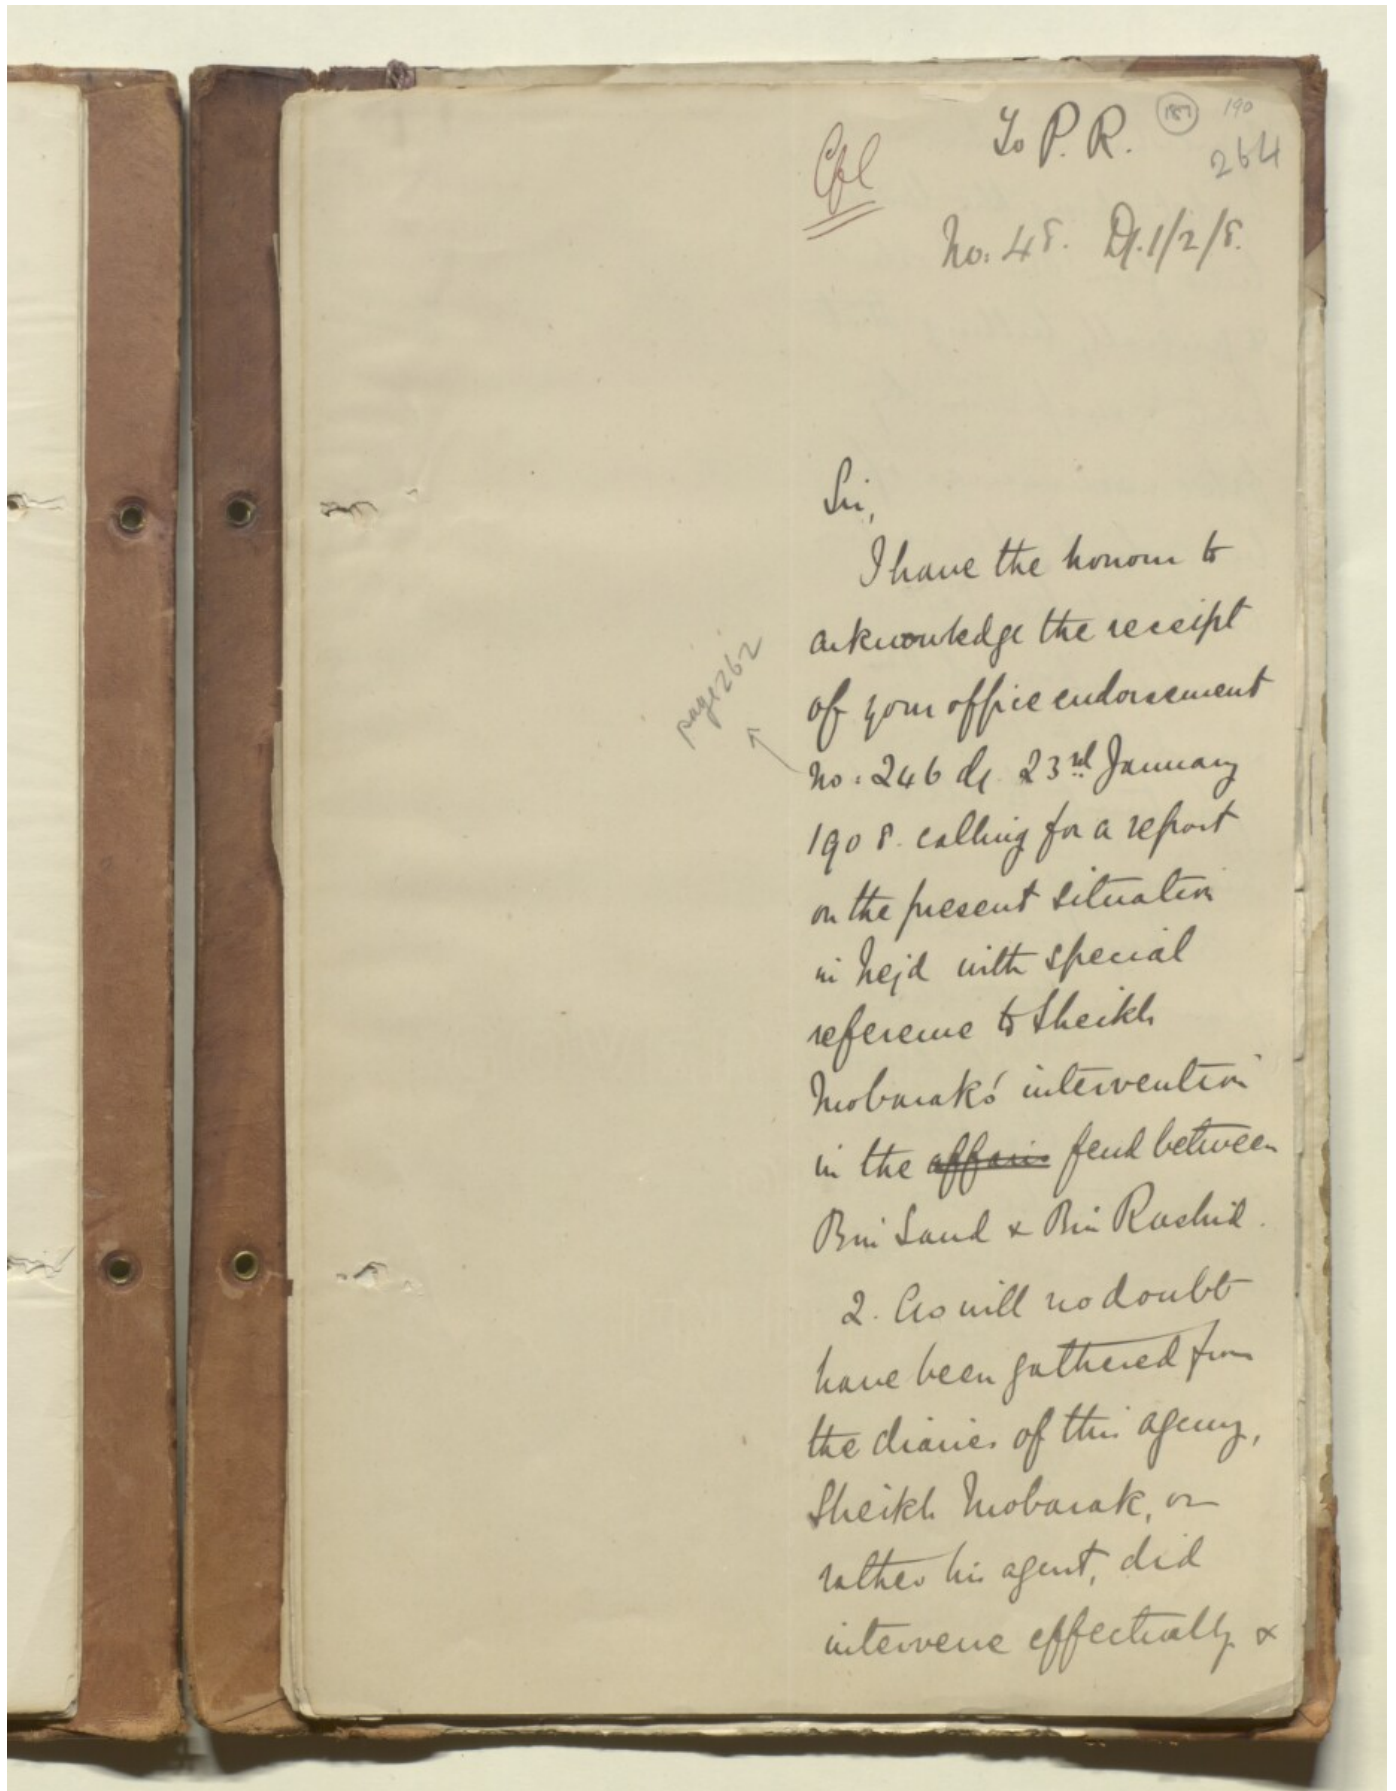 To P. R.
187
190
264
Cfl
No. 48. Dt. 1/2/8.
Sir,
I have the honour to
acknowledge the receipt
of your office endorsement
page 262
No: 246 dt. 23rd January
1908. calling for a report
on the present situation
in Nejd with special
reference to Sheikh
Mobarak's intervention
in the affairs feud between
Bin Saud & Bin Rashid.
2. As will no doubt
have been gathered from
the diaries of this agency,
Sheikh Mobarak, or
rather his agent, did
intervene effectually &